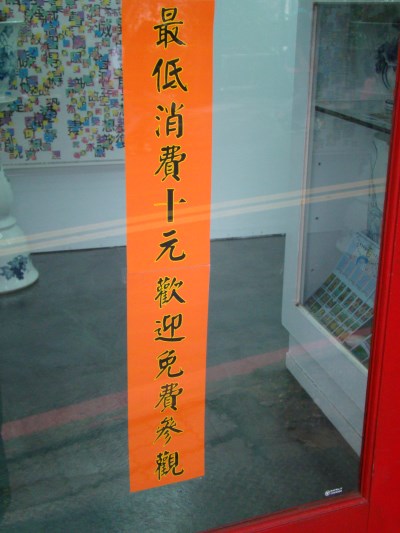 最低消費十元歡迎免費參觀